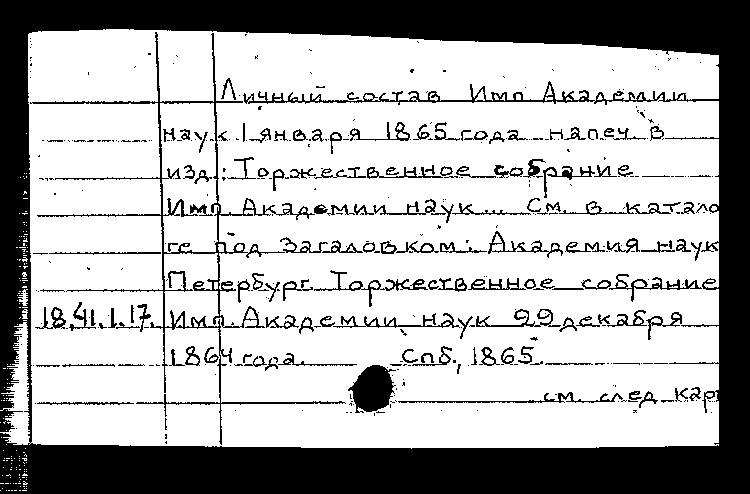 Личный состав Имп Академии
наук 1 января 1865 года напеч. в
изд.: Торжественное собрание
Имп. Академии наук... См. в катало
ге под заголовком: Академия наук
Петербург. Торжественное собрание
18.41.1.17. Имп. Академии наук 29 декабря
1864 года. Спб., 1865.
см. след карт